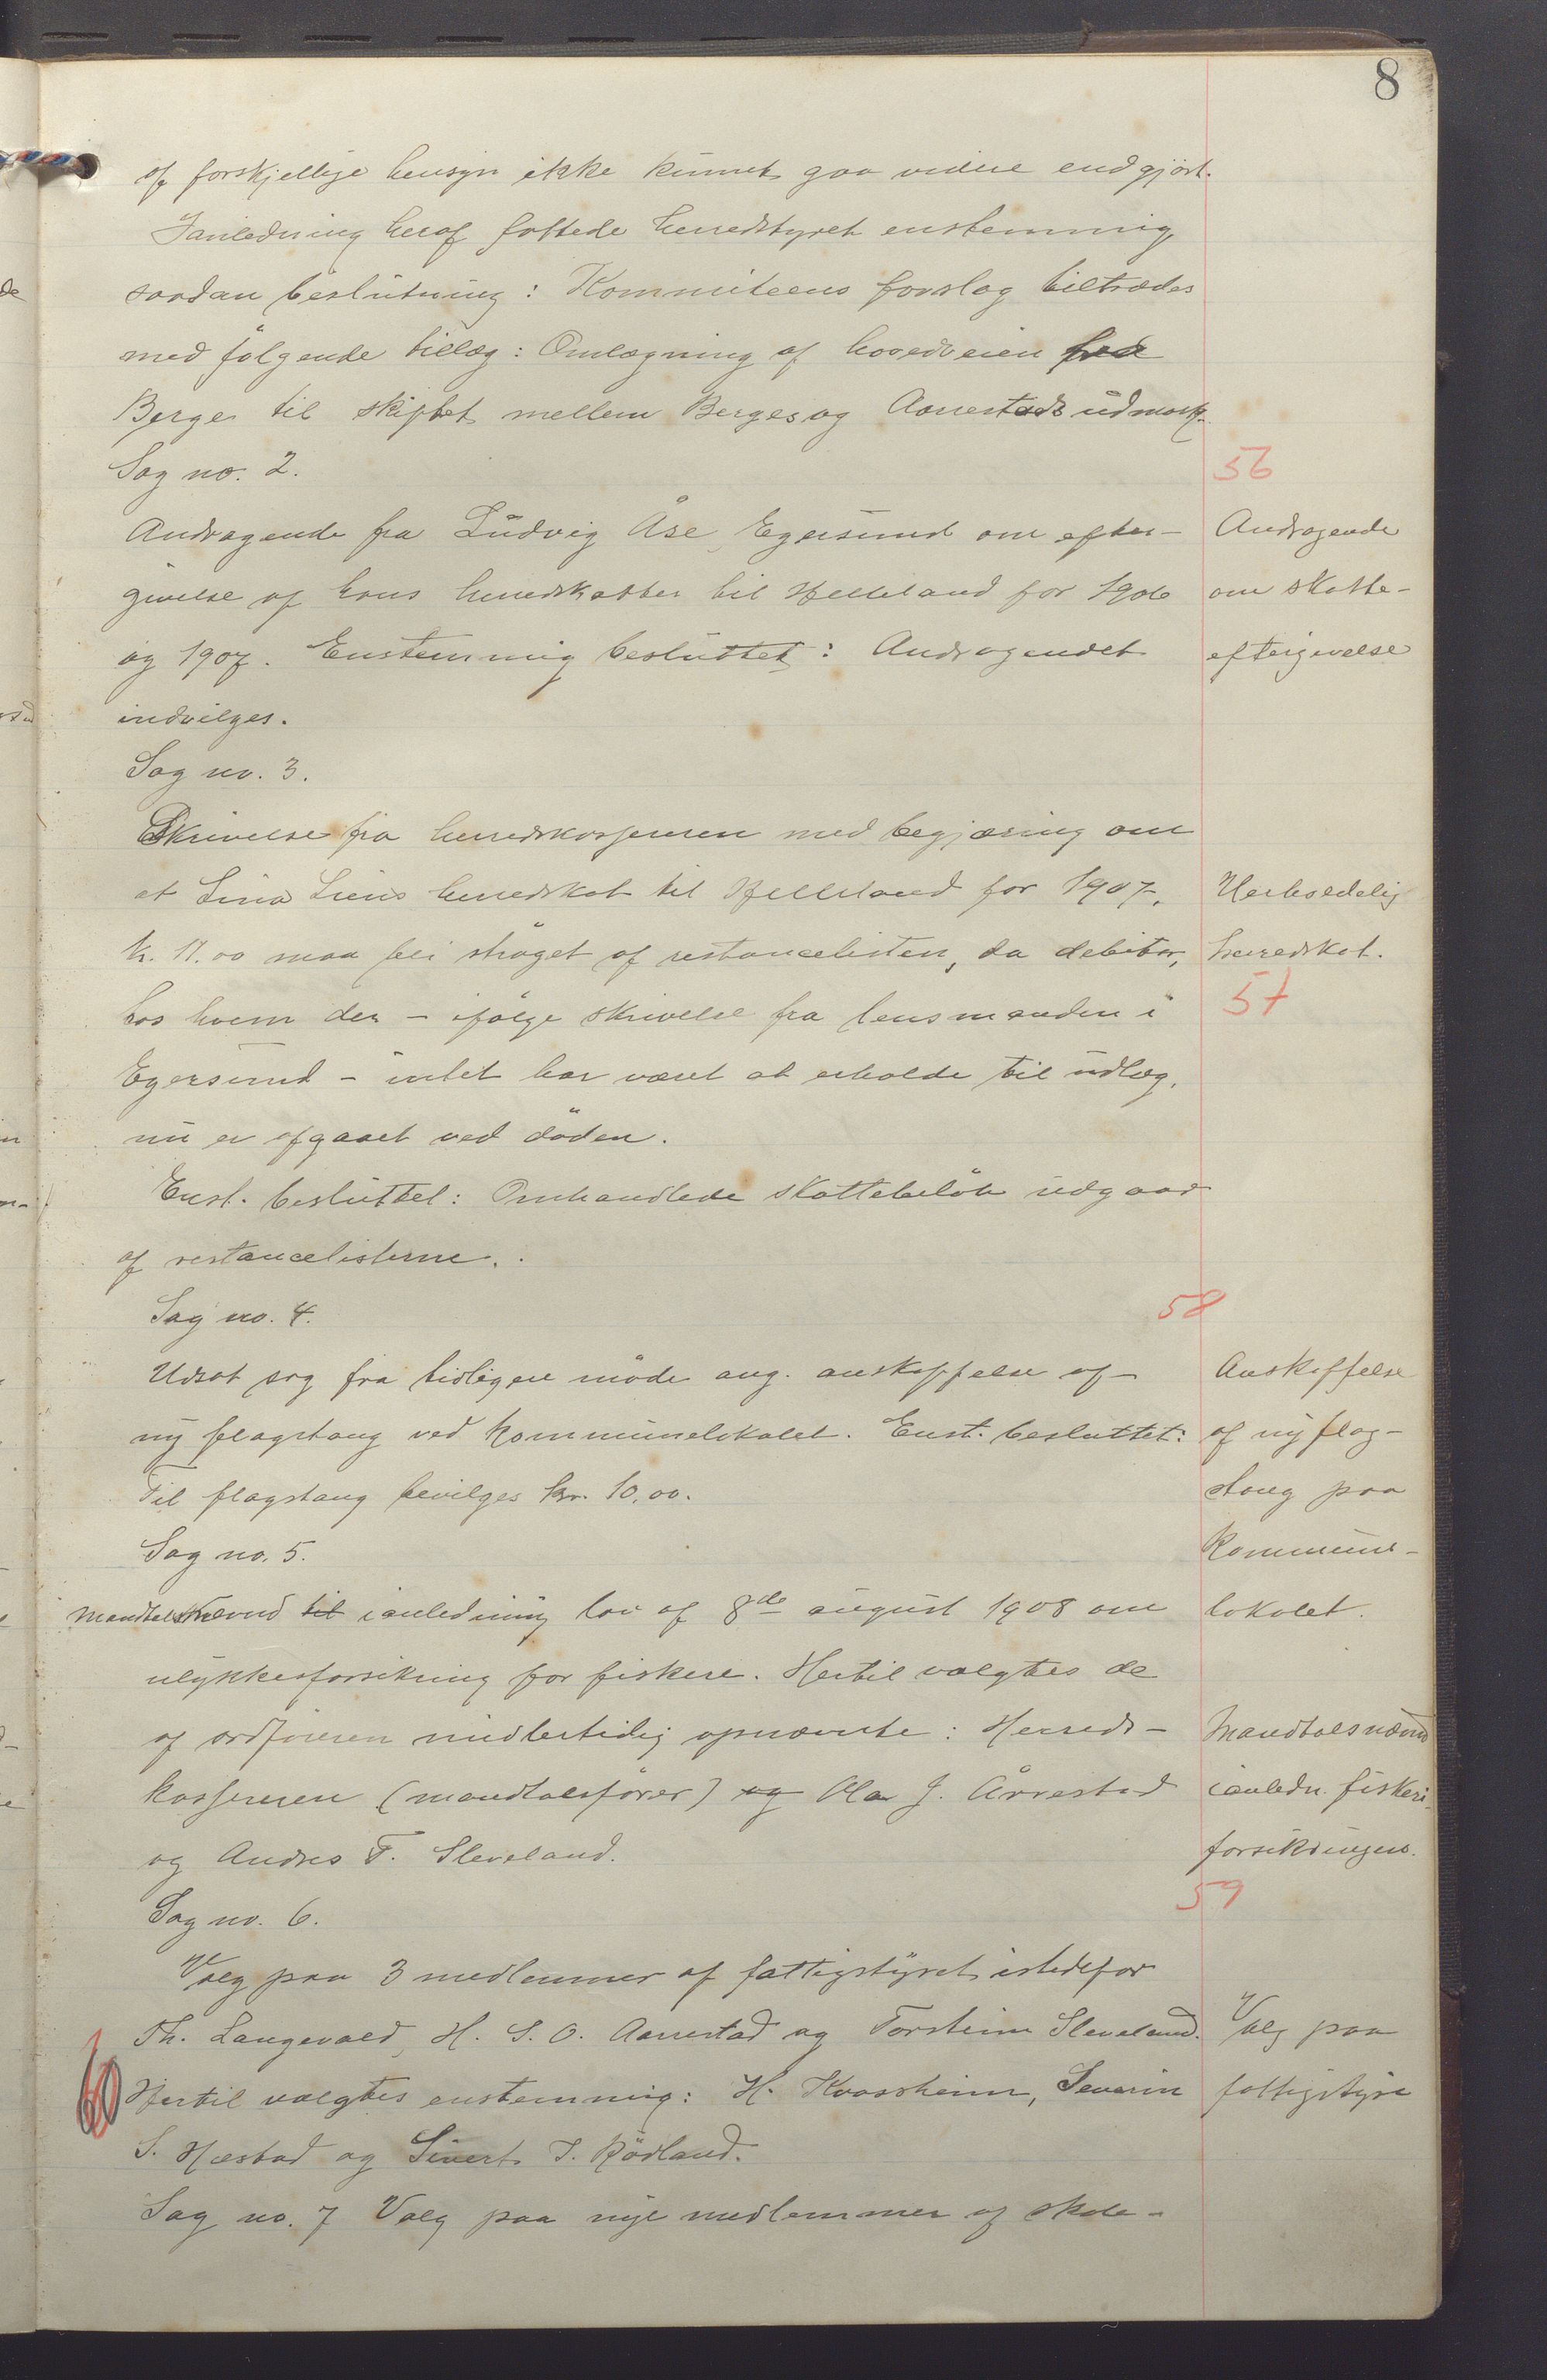 8
af forskjellige hensyn ikke kunnet gaa videre end gjort.
I anledning heraf fattede herredstyret enstemmig
saadan beslutning: Kommiteens forslag tiltrædes
med følgende tillæg: Omlægning af hovedveien fra
Berge til skiftet mellem Berges og Aarrestads udmark.
Sag no. 2.
56
Andragende fra Ludvig Åse, Egersund om efter-
givelse af hans herredskatter til Helleland for 1906
og 1907. Enstemmig besluttet: Andragendet
indvilges.
Andragende
om skatte-
eftergivelse
Sag no. 3.
Skrivelse fra herredskassereren med begjæring om
at Lina Liens herredskat til Helleland for 1907,
kr. 11.00 maa bli strøget af restancelisten, da debitor,
hos hvem der – ifølge skrivelse fra lensmanden i
Egersund – intet har været at erholde til udlæg,
nu er afgaaet ved døden.
Uerholdelig
herredskat.
57
Enst. besluttet: Omhandlede skattebeløb udgaar
af restancelisterne.
Sag no. 4.
58
Udsat sag fra tidligere møde ang. anskaffelse af
ny flagstang ved kommunelokalet. Enst. besluttet:
Til flagstang bevilges kr. 10,00.
Anskaffelse
af ny flag-
stang paa
kommune-
lokalet.
Sag no. 5.
Mandtalsnævnd til ianledning lov af 8de august 1908 om
ulykkesforsikring for fiskere. Hertil valgtes de
af ordføreren midlertidig opnævnte: Herreds-
kassereren (mandtalsfører) og Ola J. Årrestad
og Andreas T. Sleveland.
Mandtalsnævnd
ianledn. fiskeri-
forsikringen.
59
Sag no. 6.
Valg paa 3 medlemmer af fattigstyret istedefor
Th. Langevald, H. S. O. Aarrestad og Torsteinn Sleveland.
Hertil valgtes enstemmig: H. Kvassheim, Severin
S. Hæstad og Sivert I. Rødland.
Valg paa
fattigstyre
60
Sag no. 7 Valg paa nye medlemmer af skole-